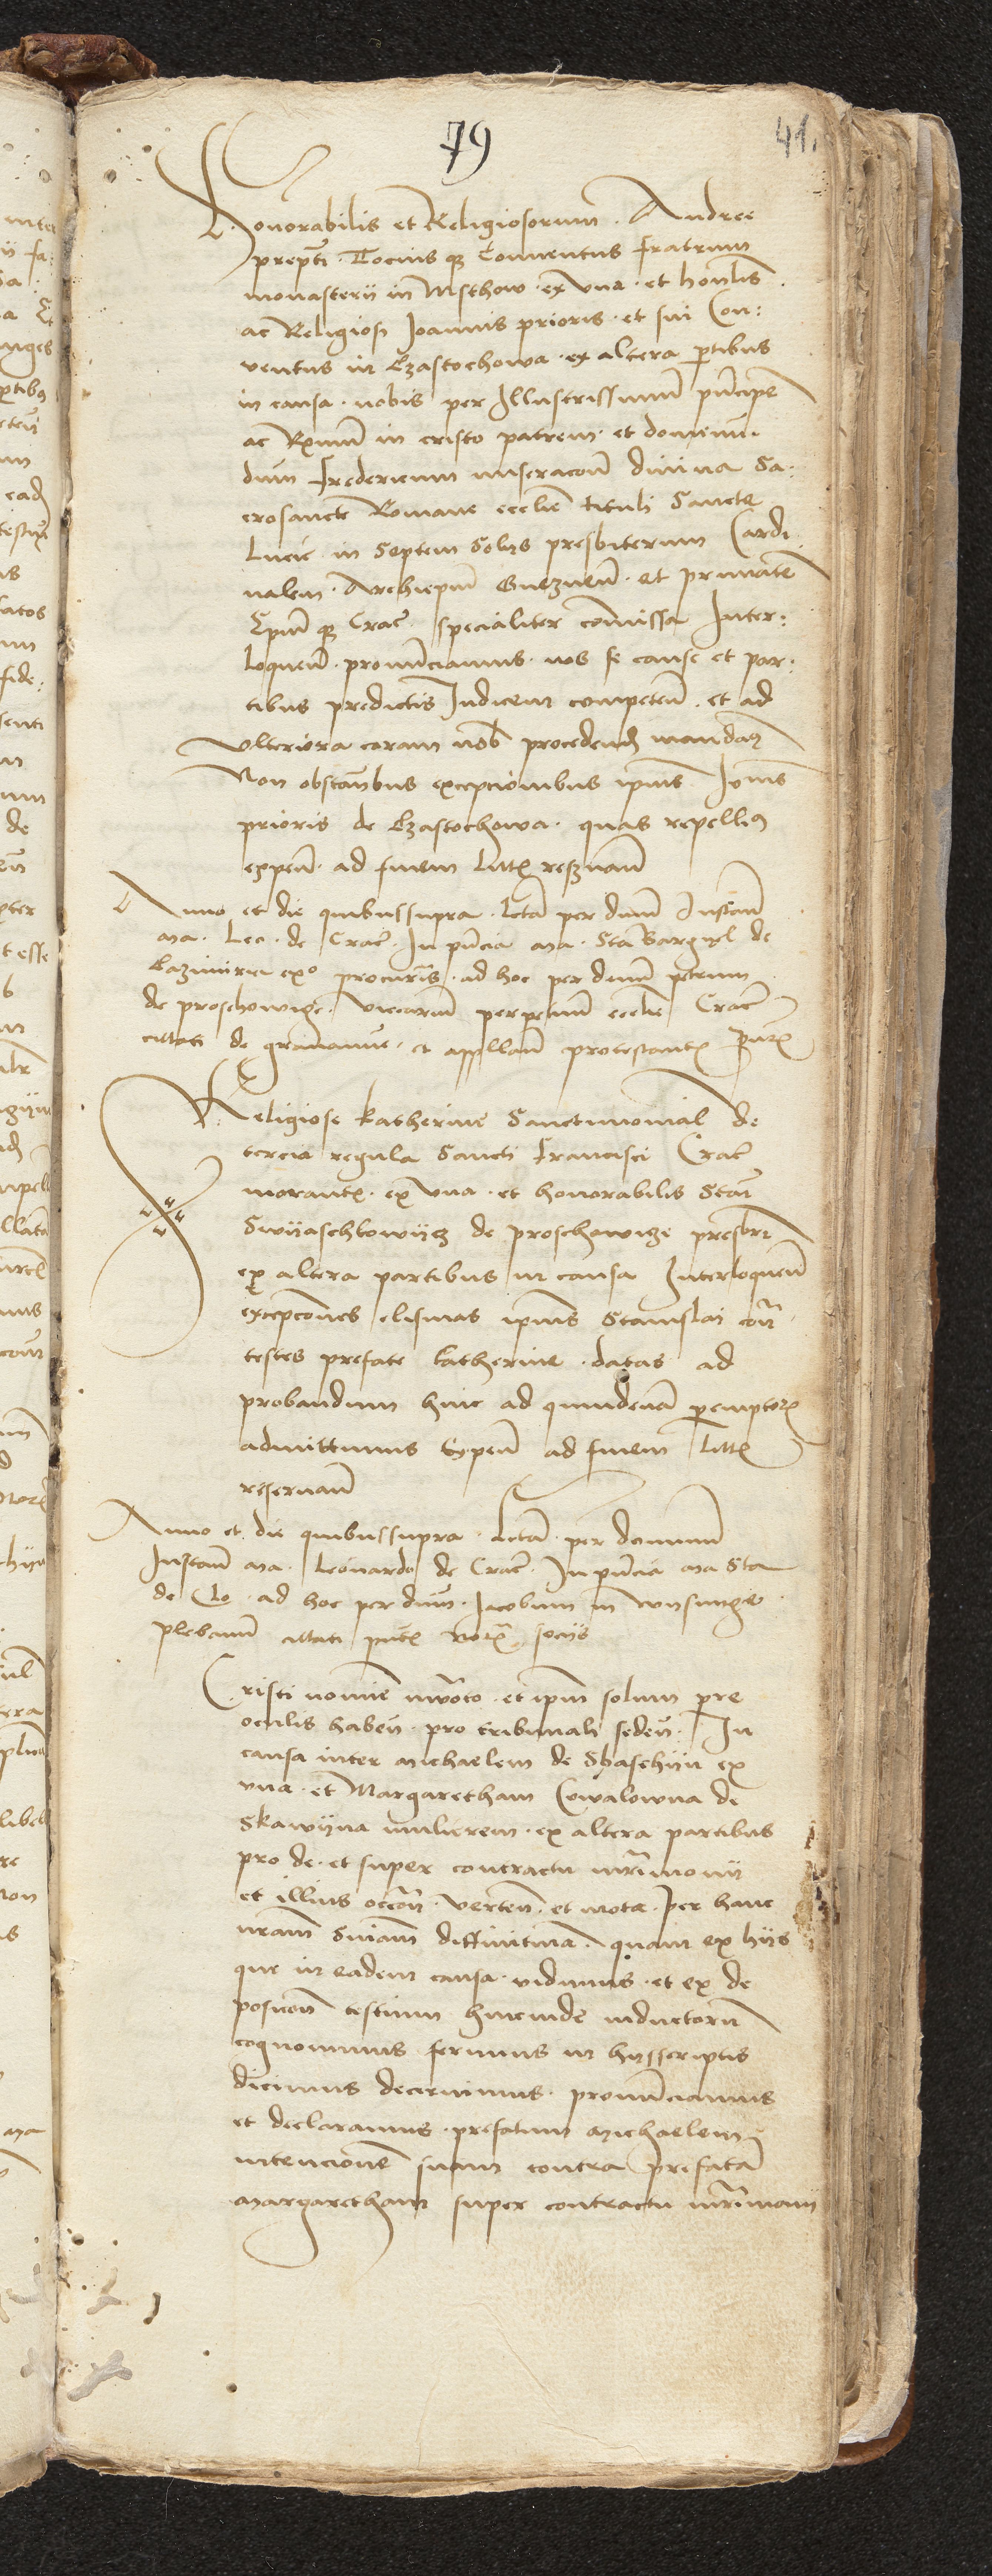 79
41.
Honorabilis et Religiosorum . Andree
prepti . Tocius qz Conuentus fratrum
monasterij in Msthow . ex vna . et honlis
ac Religiosi Joannis prioris . et sui Con:
ventus in Czastochowa . ex altera ptibus
in causa . nobis per Illustrissimum pncipe
ac Rxmum in cristo patrem . et dominum
dnum Fredericum miseracoe diuina Sa-
crosancte Romane ecclie tituli Sancte
Lucie in Septem Solijs presbiterum Cardi
nalem . Archiepum Gneznen . et primatem
Epum qz Crac . specialiter comissa Inter:
loquen . pronunciamus . nos fe cause et par-
tibus predictis Judicem competen . et ad
vlteriora coram nob procedend mandam
Non obstantibus excepcionibus ipius Jonis
prioris de Czastochowa . quas repellim
expen . ad finem littis reseruan
Anno et die quibussupra . lcta per dnum Instan
ma . Leo . de Crac . In pncia ma . Sta Bargyel de
Cazimiria exo procuris . ad hoc per dnum petrum
de proschowize . viccarium perpetuum ecclie Crac
cittati de gramanne . et appllan protestante
Religiose katherine Sanctimonial de
tercia regula Sancti Francisci Crac
morante . ex vna . et honorabilis Stan
Swijaschlowijcz de proschowize presbri
ex altera partibus in causa Interloquen
excepcones elisiuas ipius Stanislai con
testes prefate katherine . datas ad
probandum hinc ad quindenam peremptorie
admittimus Expen ad finem littis
reseruan
Anno et die quibussupra . lcta . per dominum
Instan ma . Leonardo de Crac . In pncia ma Sta
de Clo . ad hoc per dnum . Jacobum in
plebanum cittati pnte socijs
Cristi nomine inuocato . et ipm solum pre
oculis haben . pro tribunali seden . In
causa inter michaelem de ex
vna . et Margaretham Cowalowna de
Skawijna mulierem . ex altera partibus
pro de . et super contractu mrimonij
et illius occon . verten . et mota . per hanc
nram Sniam diffinitiua . quam ex hijs
que in eadem causa . vidimus . et ex de
posicon testium hincinde inductorum
cognouimus ferimus in hijsscriptis
dicimus decernimus . pronunciamus
et declaramus . prefatum michaelem
intencionem suam contra prefata
margaretham super contractu mrimonij